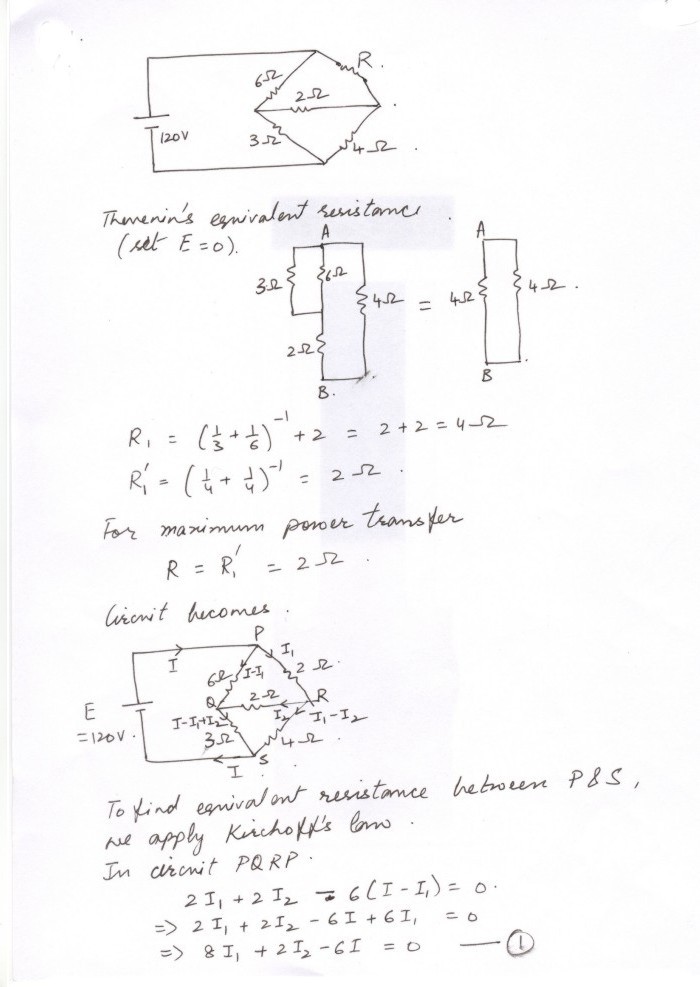 R.
6Ω
2Ω
120V
3Ω
4Ω.
Thevenin's equivalent resistance.
(set E=0).
A
3Ω
6Ω
4Ω
2Ω
B.
=
A
4Ω
4Ω.
B
R₁ = (1/3 + 1/6)⁻¹ + 2 = 2+2 = 4Ω
R₁' = (1/4 + 1/4)⁻¹ = 2Ω.
For maximum power transfer
R = R₁' = 2Ω.
Circuit becomes.
P
I
I₁
6Ω
I-I₁
2Ω.
E
=120V.
Q
2Ω
R
I-I₁+I₂
I₂
I₁-I₂
3Ω
4Ω
S
I
To find equivalent resistance between P & S,
we apply Kirchoff's law.
In circuit PQRP.
2I₁ + 2I₂ - 6(I-I₁) = 0.
=> 2I₁ + 2I₂ - 6I + 6I₁ = 0
=> 8I₁ + 2I₂ - 6I = 0 — ①